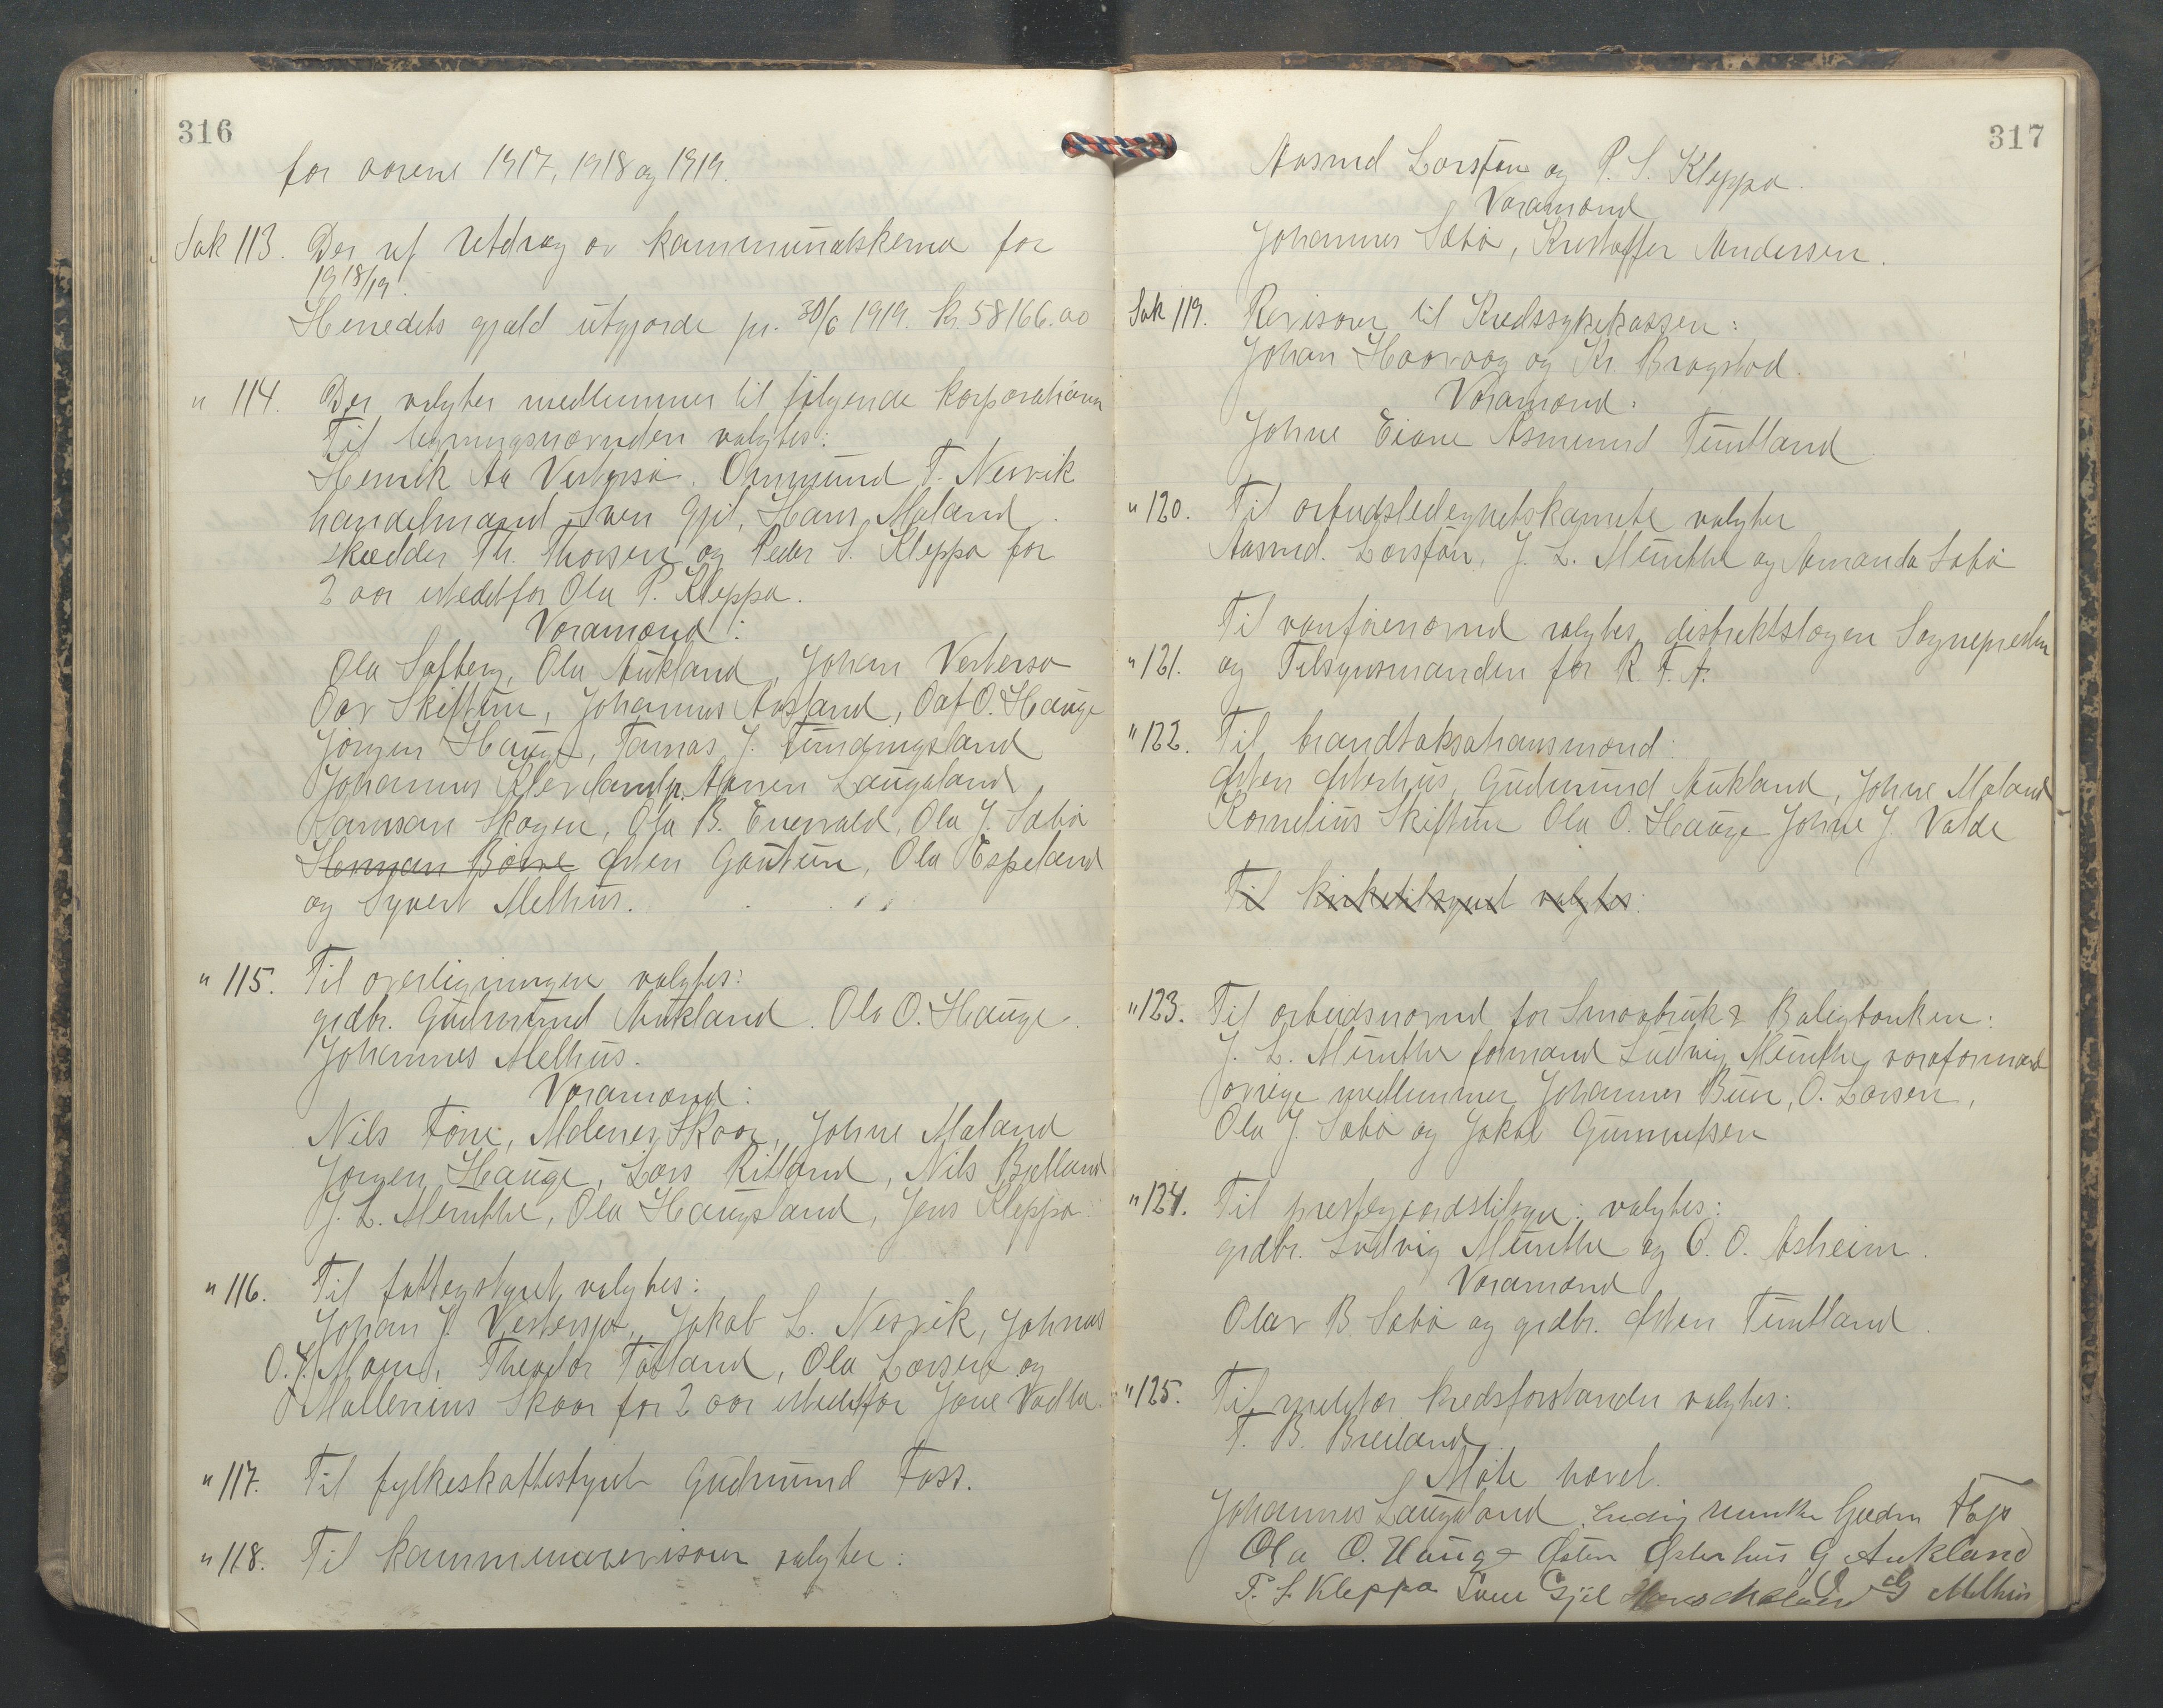 316
for aarene 1917, 1918 og 1919.
Sak 113. Der ref Utdrag av kommunalskema for
1918/19.
Herredets gjæld utgjorde pr. 30/6 1919. kr. 58166.00
" 114. Der valgtes medlemmer til følgende korporationer
Til ligningsnævnden valgtes:
Henrik Aa Vestersjø, Ommund T. Nesvik
handelsmand Sven Gjil, Hans Maland
skredder Th. Thorsen og Peder S. Kleppa for
2 aar istedetfor Ola P. Kleppa.
Varamænd:
Ola Softberg, Ola Aukland, Johan Vestersø
Oav Skiftun, Johannes Aasland, Oaf O. Hauge
Jørgen Hauge, Tomas J. Tundingsland
Johannes Klevelandp. Aanen Laugaland
Samson Skogen, Ola B. Enervald, Ola J. Sabø
Herman Børve Østen Gautun, Ola Espeland
og Syvert Melhus.
" 115. Til overligningen valgtes:
grdbr. Gudmund Aukland. Ola O. Hauge.
Johannes Melhus.
Varamænd:
Nils Føne, Molenes Skaar, Johne Maland
Jørgen Hauge, Lars Ritland, Nils Bjelland
J. L. Munthe, Ola Haugsland, Jens Kleppa.
" 116. Til fattigstyret valgtes:
Johan J. Vestersjø, Jakob L. Nesvik, Johnas
O. J. Moen, Theodor Tøtland, Ola Larsen og
Mallenius Skaar for 2 aar istedetfor Jone Vadla.
" 117. Til fylkesskattestyret Gudmund Foss.
" 118. Til kommunerevisorer valgtes:
317
Aasmd Larstøn og P. S. Kleppa.
Varamænd
Johannes Sæbø, Kristoffer Andersen.
Sak 119. Revisorer til Kredssykekassen:
Johan Haavaag og Kr. Bragstad.
Varamænd:
Johne Eiane Asmund Tuntland
" 120. Til arbeidsledighetskomite valgtes
Aasmd. Larstøn, J. L. Munthe og Amanda Sabø
Til vanførenævnd valgtes distriktslægen Sognepresten
" 121. og Tilsynsmanden for R. F. A.
" 122. Til brandtakstationsmænd:
Østen Østerhus, Gudmund Aukland, Johne Maland
Kornelius Skiftun Ola O. Hauge Johne J. Valde
Til kirketilsynet valgtes:
" 123. Til arbeidsnævnd for Smaabruk & Boligbanken:
J. L. Munthe formand Ludvig Munthe varaformand
øvrige medlemmer Johannes Bun, O. Larsen,
Ola J. Sabø og Jakob Gunnulsen
" 124. Til prestegaardstilsyn: valgtes:
grdbr. Ludvig Munthe og O. O. Asheim.
Varamænd
Olav B. Sabø og grdbr. Østen Tuntland.
" 125. Til militær kredsforstander valgtes:
T. B. Breiland
Møte hævet.
Johannes Laugaland Ludvig Munthe Gudm Foss
Ola O. Hauge Østen Østerhus G Aukland
P. S. Kleppa Sven Gjil Hans Maland G Melhus